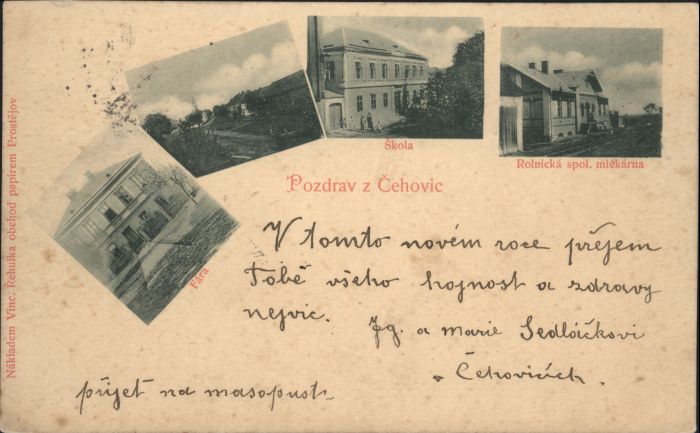 Škola
Rolnická spol. mlékárna
Pozdrav z Čehovic
Fára
Nákladem Vinc. Řehulka obchod papírem Prostějov
V tomto novém roce přejem
Tobě všeho hojnost a zdravy
nejvic. Jg. a marie Sedláčkovi
v Čehovicích.
přijet na masopust